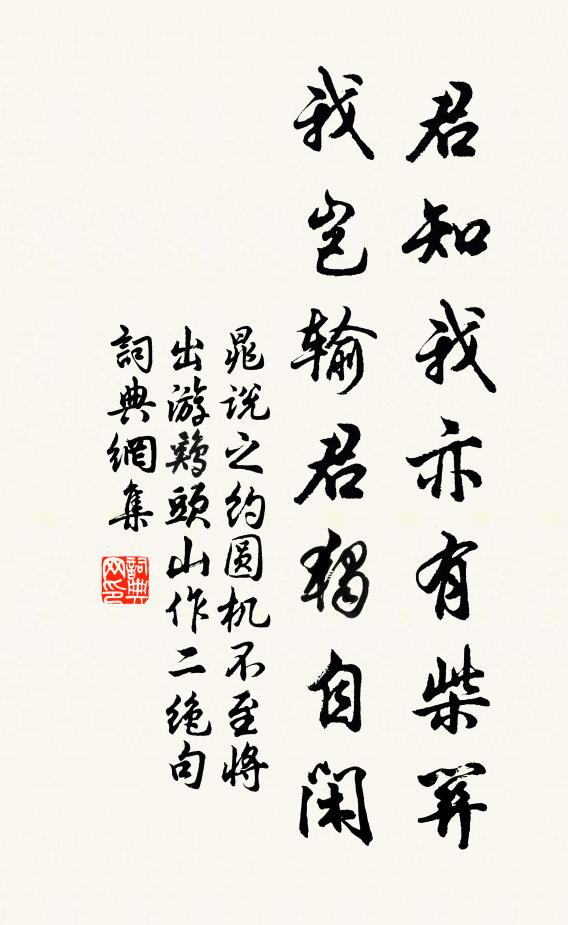 君知我亦有柴關
我岂输君獨自闲
晁说之约圆机不至将
出游鷄頭山作二绝句
詞典網集
詞典网印